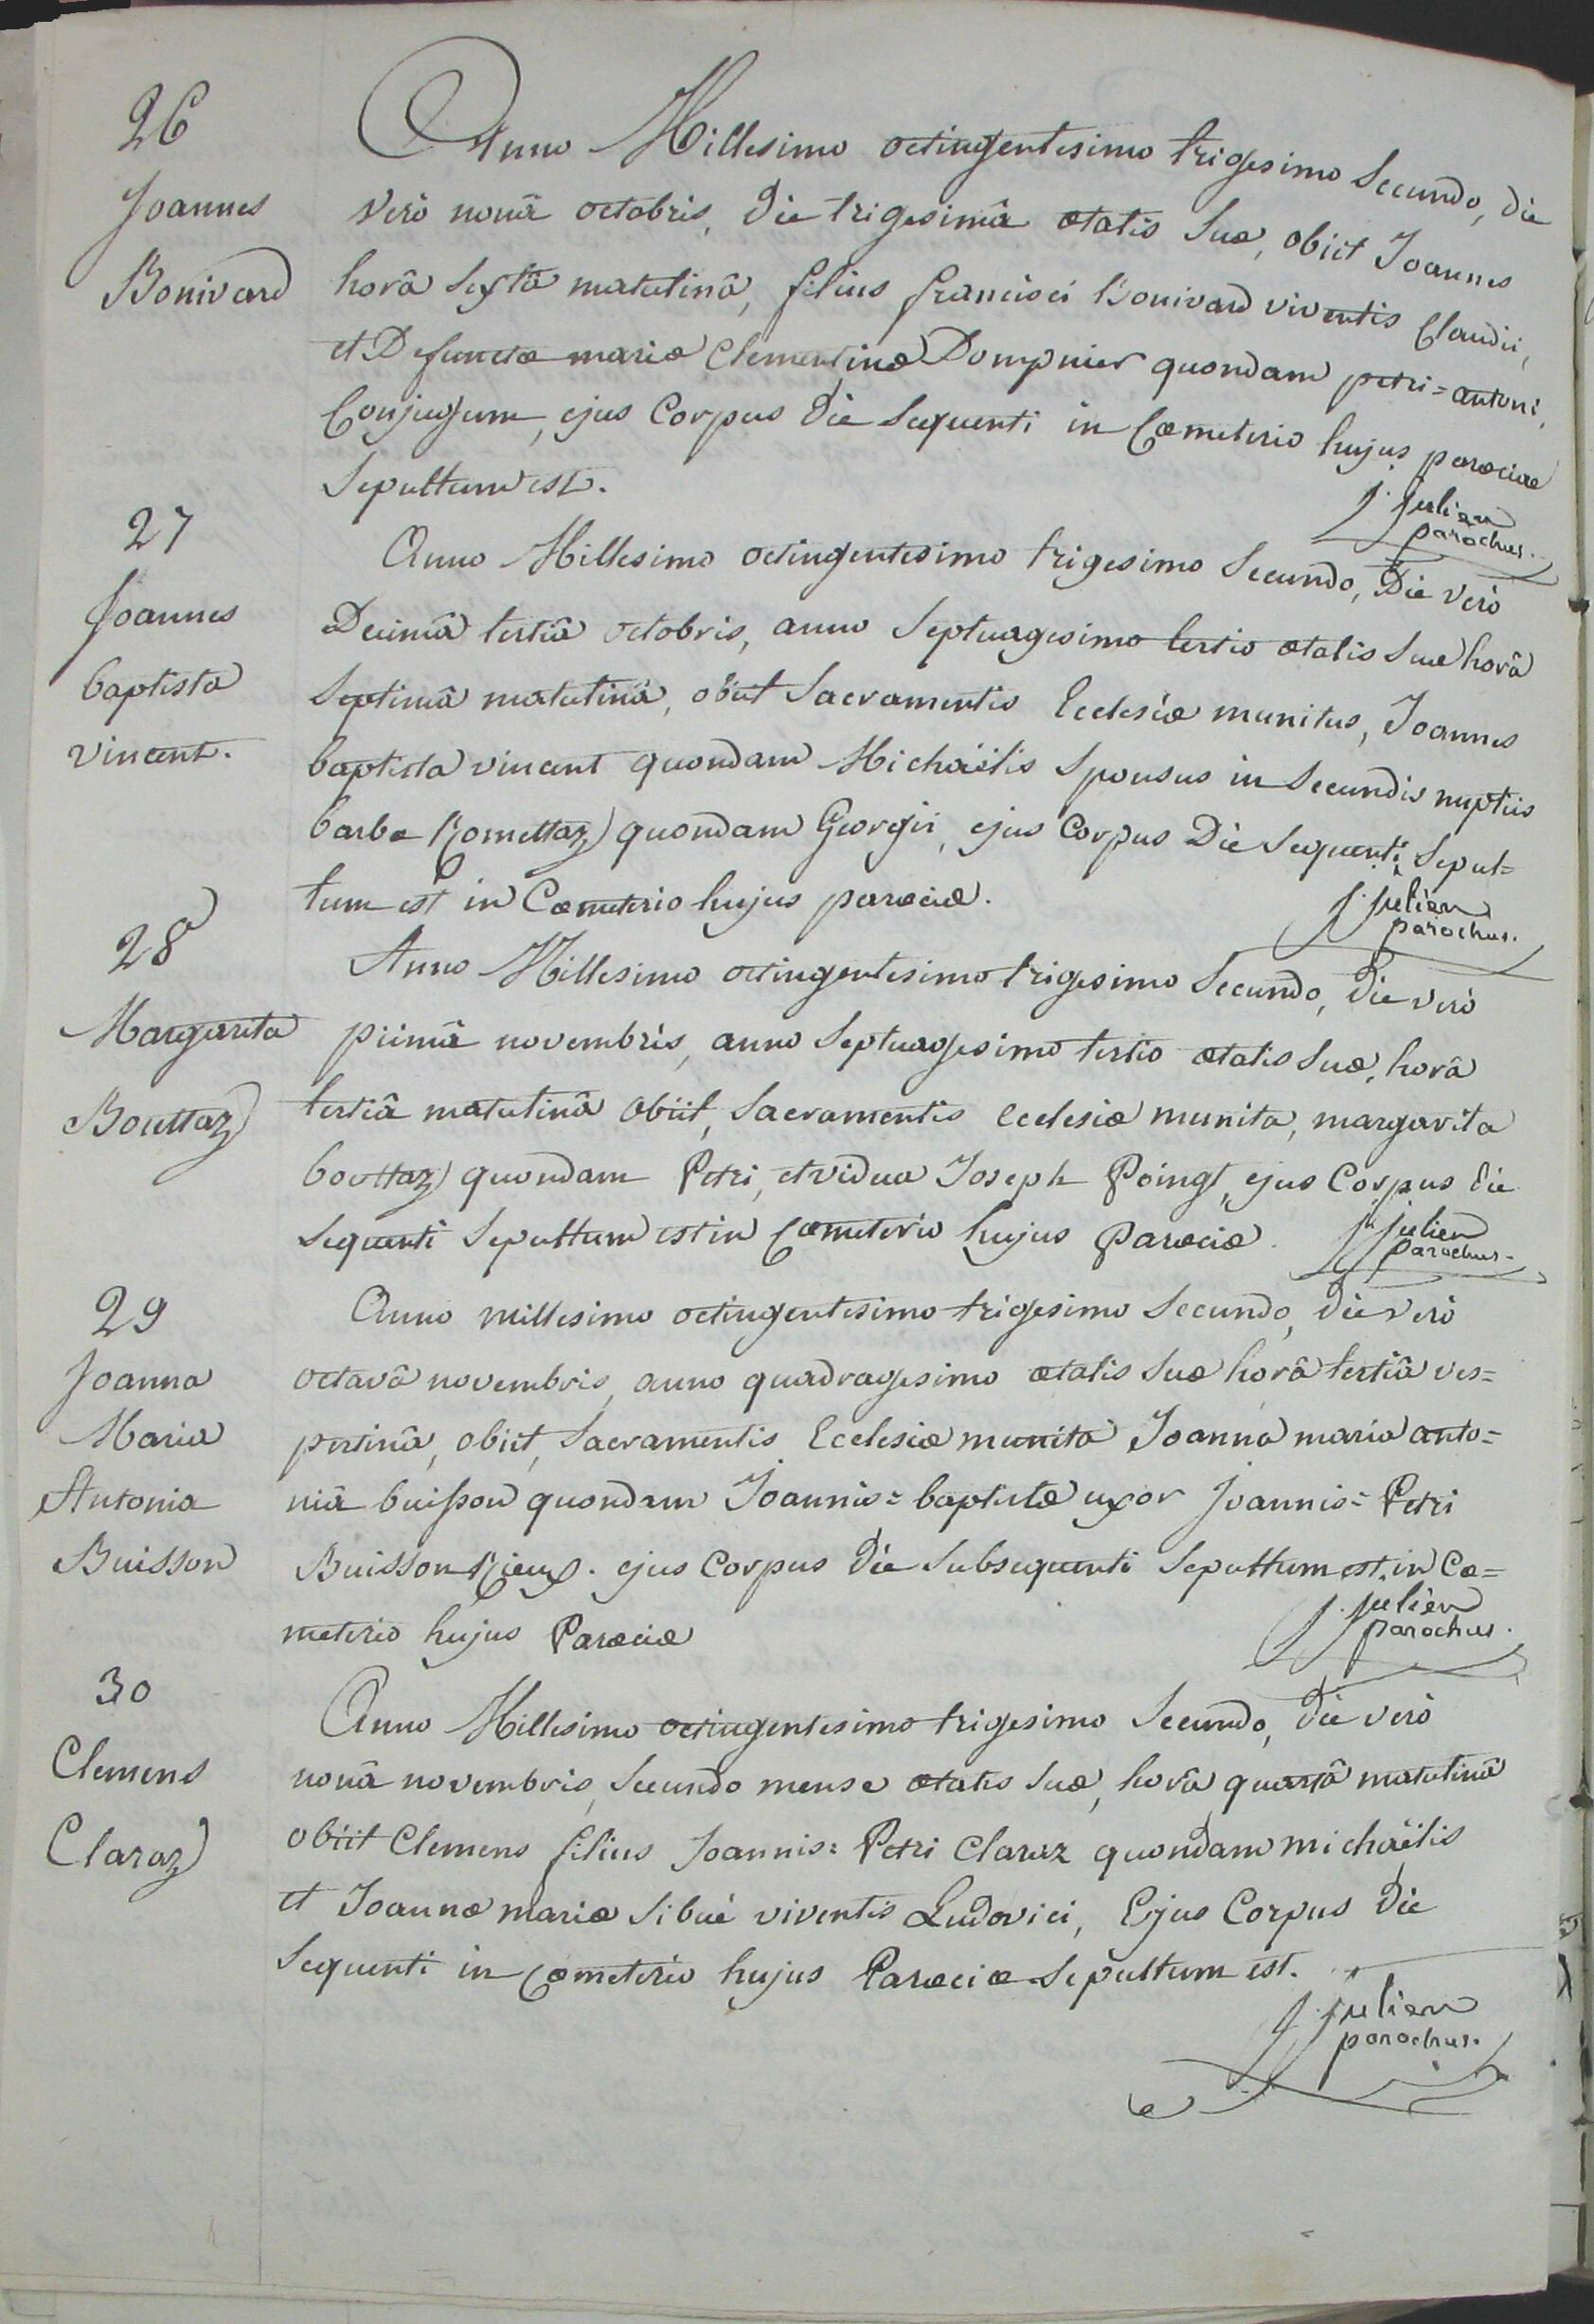 26
Joannes
Bonivard
Anno Millesimo octingentesimo trigesimo Secundo, die
verò nonâ octobris, die trigesimâ œtatis suœ, obiit Joannes
horâ sextâ matutinâ, filius francisci bonivard viventis Claudii,
et Defunctœ mariœ Clementinœ Dompnier quondam petri=antoni,
Conjugum, ejus Corpus die sequenti in Cœmeterio hujus parœciœ
sepultum est.
j. julien
parochus.
27
Joannes
baptista
vincent.
Anno Millesimo octingentesimo trigesimo Secundo, Die verò
Decimâ tertiâ octobris, anno septuagesimo tertio œtatis suœ horâ
septimâ matutinâ, obiit Sacramentis Ecclesiœ munitus, Joannes
baptista vincent quondam Michaëlis sponsus in secundis nuptiis
barbœ Romettaz quondam Georgii, ejus Corpus Die sequenti sepul=
tum est in Cœmeterio hujus parœciœ.
j. julien
parochus.
28
Margarita
Bouttaz
Anno Millesimo octingentesimo trigesimo Secundo, die verò
primâ novembris, anno septuagesimo tertio œtatis suœ, horâ
tertiâ matutinâ obiit, Sacramentis ecclesiœ munita, margarita
bouttaz quondam Petri, et vidua Joseph Poingt, ejus Corpus die
sequenti sepultum est in Cœmeterio hujus Parœciœ.
j. julien
parochus.
29
Joanna
Maria
Antonia
Buisson
Anno millesimo octingentesimo trigesimo Secundo, die verò
octavâ novembris, anno quadragesimo œtatis suœ horâ tertiâ ves=
pertinâ, obiit, Sacramentis Ecclesiœ munita Joanna maria anto=
nia buisson quondam Joannis=baptistœ uxor Joannis=Petri
Buisson Rieux. ejus Corpus die subsequenti sepultum est in Cœ=
meterio hujus Parœciœ
j. julien
parochus.
30
Clemens
Claraz
Anno Millesimo octingentesimo trigesimo Secundo, die verò
nonâ novembris, secundo mense œtatis suœ, horâ quartâ matutinâ
obiit Clemens filius Joannis=Petri Claraz quondam michaëlis
et Joannœ mariœ Sibué viventis Ludovici, Ejus Corpus die
sequenti in Cœmeterio hujus Parœciœ sepultum est.
j. julien
parochus.